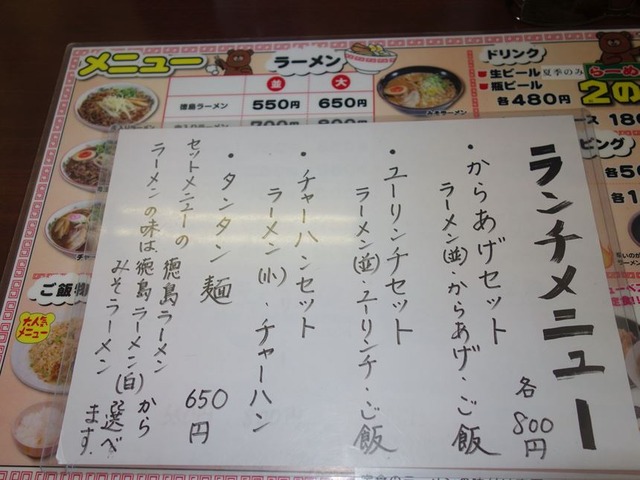 メニュー
ラーメン
並
大
徳島ラーメン
550円
650円
みそラーメン
ドリンク
生ビール 夏季のみ
瓶ビール
各480円
らーめ
2の
ピング
ご飯物
大人気
メニュー
ランチメニュー
各800円
・からあげセット
ラーメン(並)・からあげ・ご飯
・ユーリンチセット
ラーメン(並)・ユーリンチ・ご飯
・チャーハンセット
ラーメン(小)・チャーハン
・タンタン麺 650円
セットメニューの徳島ラーメン
ラーメンの味は、徳島ラーメン(白)から
みそラーメン 選べます。